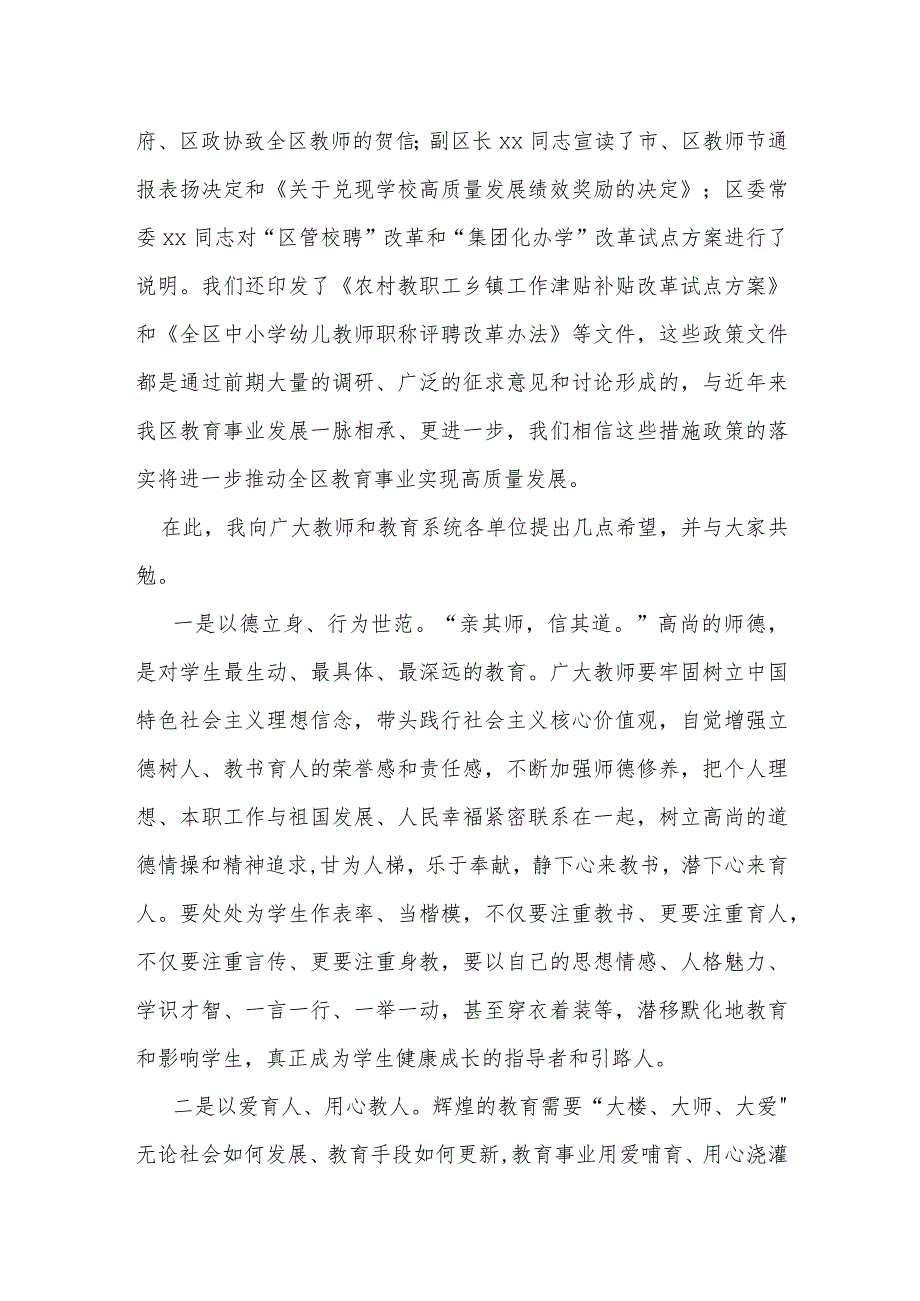 府、区政协致全区教师的贺信；副区长 xx 同志宣读了市、区教师节通
报表扬决定和《关于兑现学校高质量发展绩效奖励的决定》；区委常
委 xx 同志对“区管校聘”改革和“集团化办学”改革试点方案进行了
说明。我们还印发了《农村教职工乡镇工作津贴补贴改革试点方案》
和《全区中小学幼儿教师职称评聘改革办法》等文件，这些政策文件
都是通过前期大量的调研、广泛的征求意见和讨论形成的，与近年来
我区教育事业发展一脉相承、更进一步，我们相信这些措施政策的落
实将进一步推动全区教育事业实现高质量发展。
在此，我向广大教师和教育系统各单位提出几点希望，并与大家共
勉。
一是以德立身、行为世范。“亲其师，信其道。”高尚的师德，
是对学生最生动、最具体、最深远的教育。广大教师要牢固树立中国
特色社会主义理想信念，带头践行社会主义核心价值观，自觉增强立
德树人、教书育人的荣誉感和责任感，不断加强师德修养，把个人理
想、本职工作与祖国发展、人民幸福紧密联系在一起，树立高尚的道
德情操和精神追求,甘为人梯，乐于奉献，静下心来教书，潜下心来育
人。要处处为学生作表率、当楷模，不仅要注重教书、更要注重育人，
不仅要注重言传、更要注重身教，要以自己的思想情感、人格魅力、
学识才智、一言一行、一举一动，甚至穿衣着装等，潜移默化地教育
和影响学生，真正成为学生健康成长的指导者和引路人。
二是以爱育人、用心教人。辉煌的教育需要“大楼、大师、大爱"
无论社会如何发展、教育手段如何更新,教育事业用爱哺育、用心浇灌